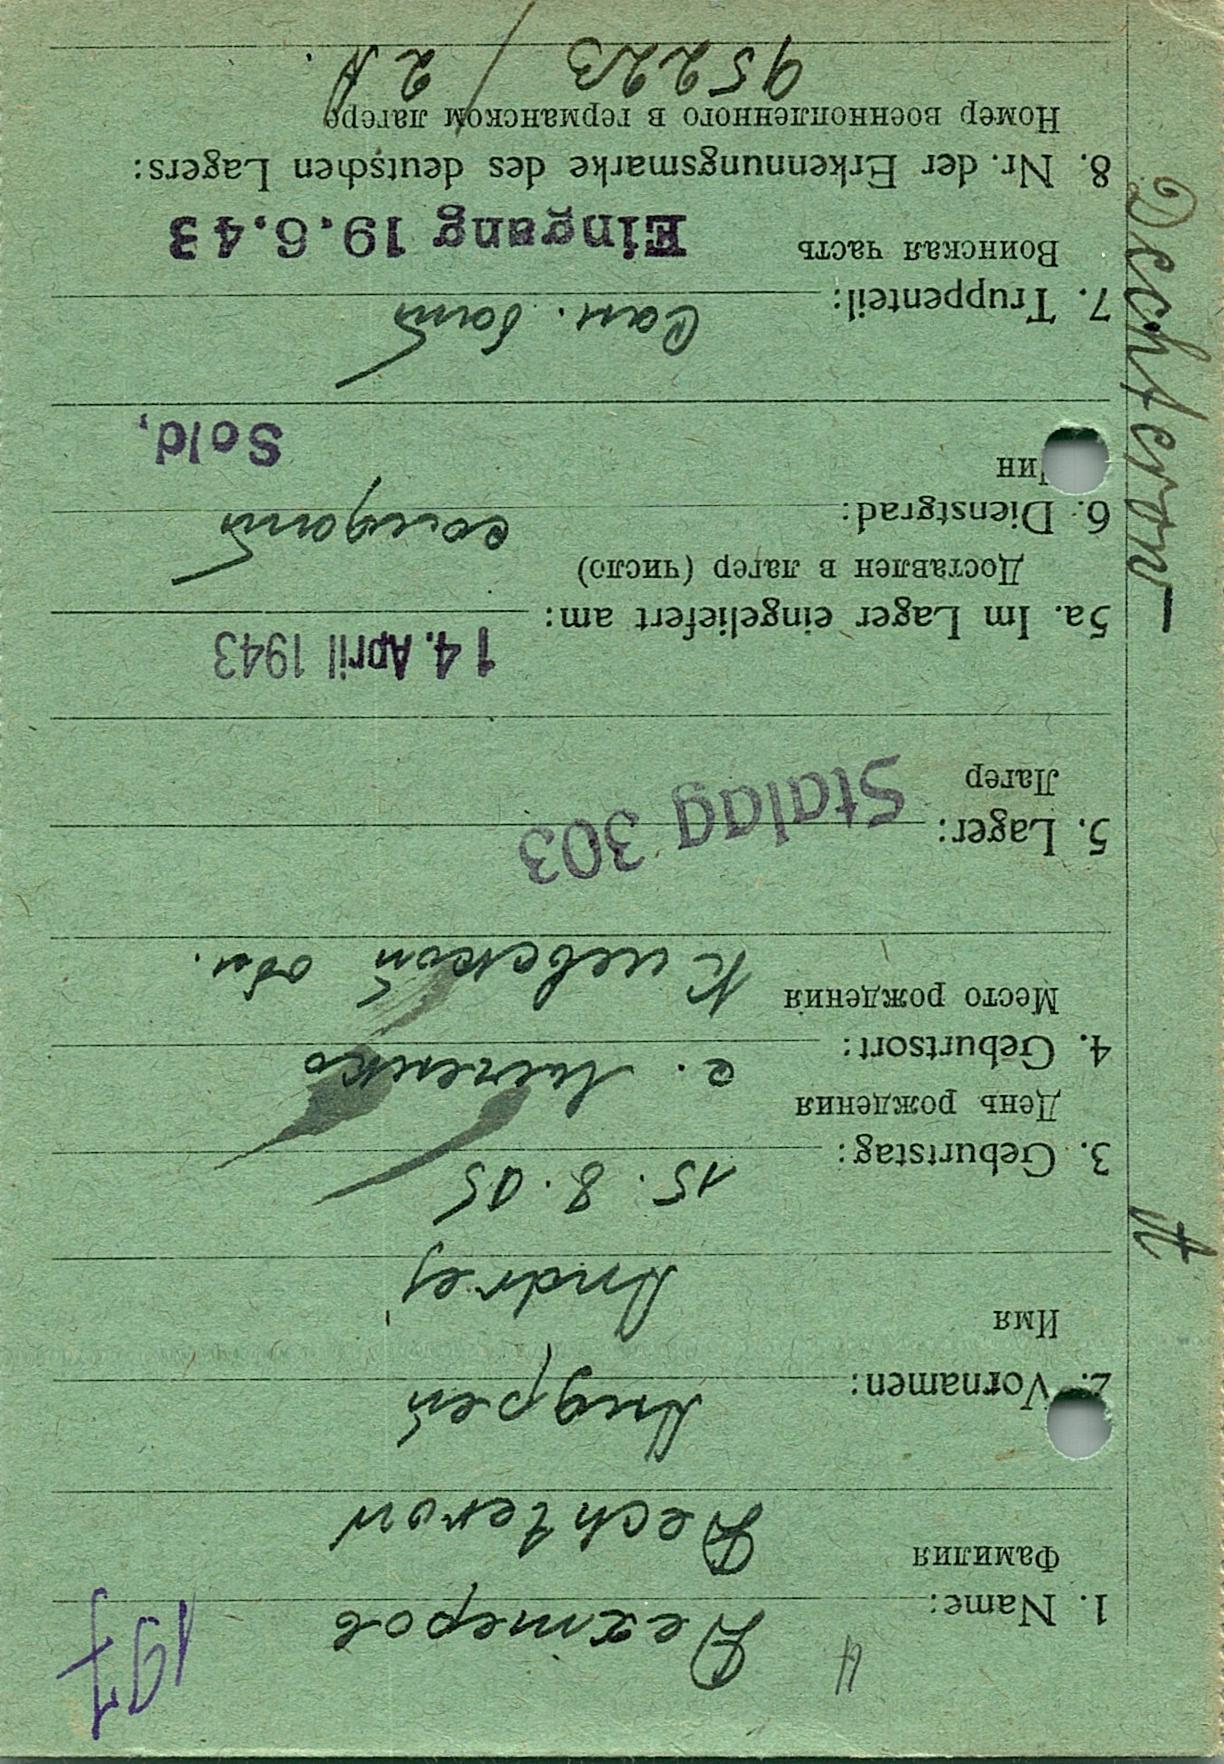 197
1. Name: Дехтеров
Фамилия
Dechterow
2. Vornamen: Андрей
Имя
Andrej
3. Geburtstag: 15.8.05
День рождения
4. Geburtsort: с.
Место рождения
Киевской обл.
5. Lager: Stalag 303
Лагер
5a. Im Lager eingeliefert am: 14. April 1943
Доставлен в лагер (число)
6. Dienstgrad: солдат
Чин
Sold,
7. Truppenteil: Сан. бат
Воинская часть
Eingang 19.6.43
8. Nr. der Erkennungsmarke des deutschen Lagers:
Номер военнопленного в германском лагере
95223 / 2A.
Dechterow
A